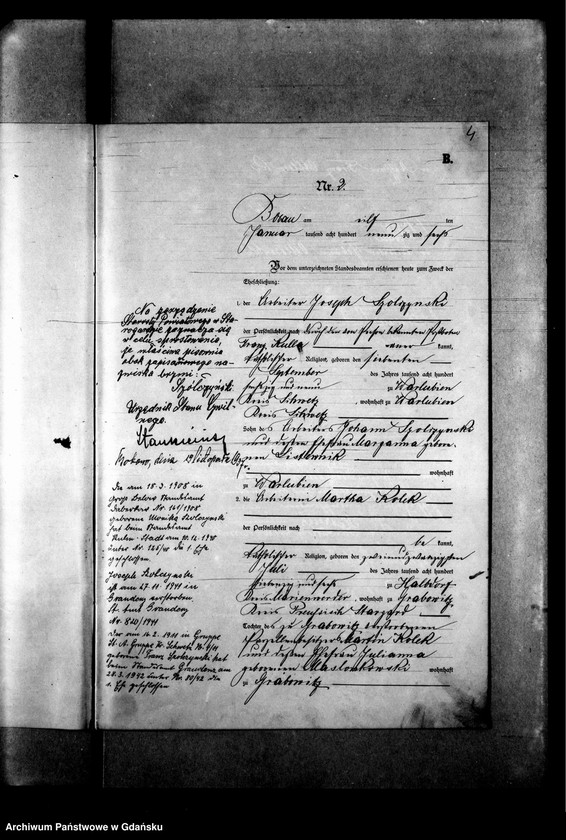 4
B.
Nr. 2.
Bobau am eilf ten
Januar tausend acht hundert neun zig und sechs
Vor dem unterzeichneten Standesbeamten erschienen heute zum Zweck der
Eheschließung:
1. der Arbeiter Joseph Szolczynski
der Persönlichkeit nach durch den den Person bekannten
Franz Kulla kannt,
katholischer Religion, geboren den siebenten
September des Jahres tausend acht hundert
sechszig und neun zu Warlubien
Kreis Schwetz, wohnhaft zu Warlubien
Kreis Schwetz
Sohn des Arbeiters Johann Szolczynski
und dessen Ehefrau Maryanna gebor-
nen
wohnhaft
zu Warlubien
2. die Arbeiterin Martha Kolek
der Persönlichkeit nach
be kannt,
katholischer Religion, geboren den zweiundzwanzigsten
Juli des Jahres tausend acht hundert
siebenzig und sechs zu Kalbdorf
Kreis Marienwerder, wohnhaft zu Grabowitz
Kreis Preußisch Stargard
Tochter des zu Grabowitz verstorbenen
Martin Kolek
und dessen Ehefrau Julianna
geborenen Maslonkowski wohnhaft
zu Grabowitz
Na zarządzenie
Starosty Powiatowego w Sta-
rogardzie poznacza się
w celu sprostowania,
że właściwa pisownia
obok zapisanego na-
zwiska brzmi:
Szólczyński
Urzędnik Stanu Cywil-
nego.
Bobowo, dnia 19 listopada
Die am 18.3.1908 in
Gross
Nr. 141/1908
geborene Monika Szolczynski
hat beim Standesamt
Stadt am
unter Nr. die 1. Ehe
geschlossen.
Joseph Szolczynski
ist am 27.11.1941 in
Graudenz verstorben
St. Amt Graudenz
Nr. 820/1941
Der am 14.2.1911 in Gruppe
St. A. Gruppe Kr. Schwetz Nr. 9/11
geborene Franz Szolczynski hat
beim Standesamt Graudenz am
28.3.1942 unter Nr. 80/42 die
1. Ehe geschlossen
Archiwum Państwowe w Gdańsku